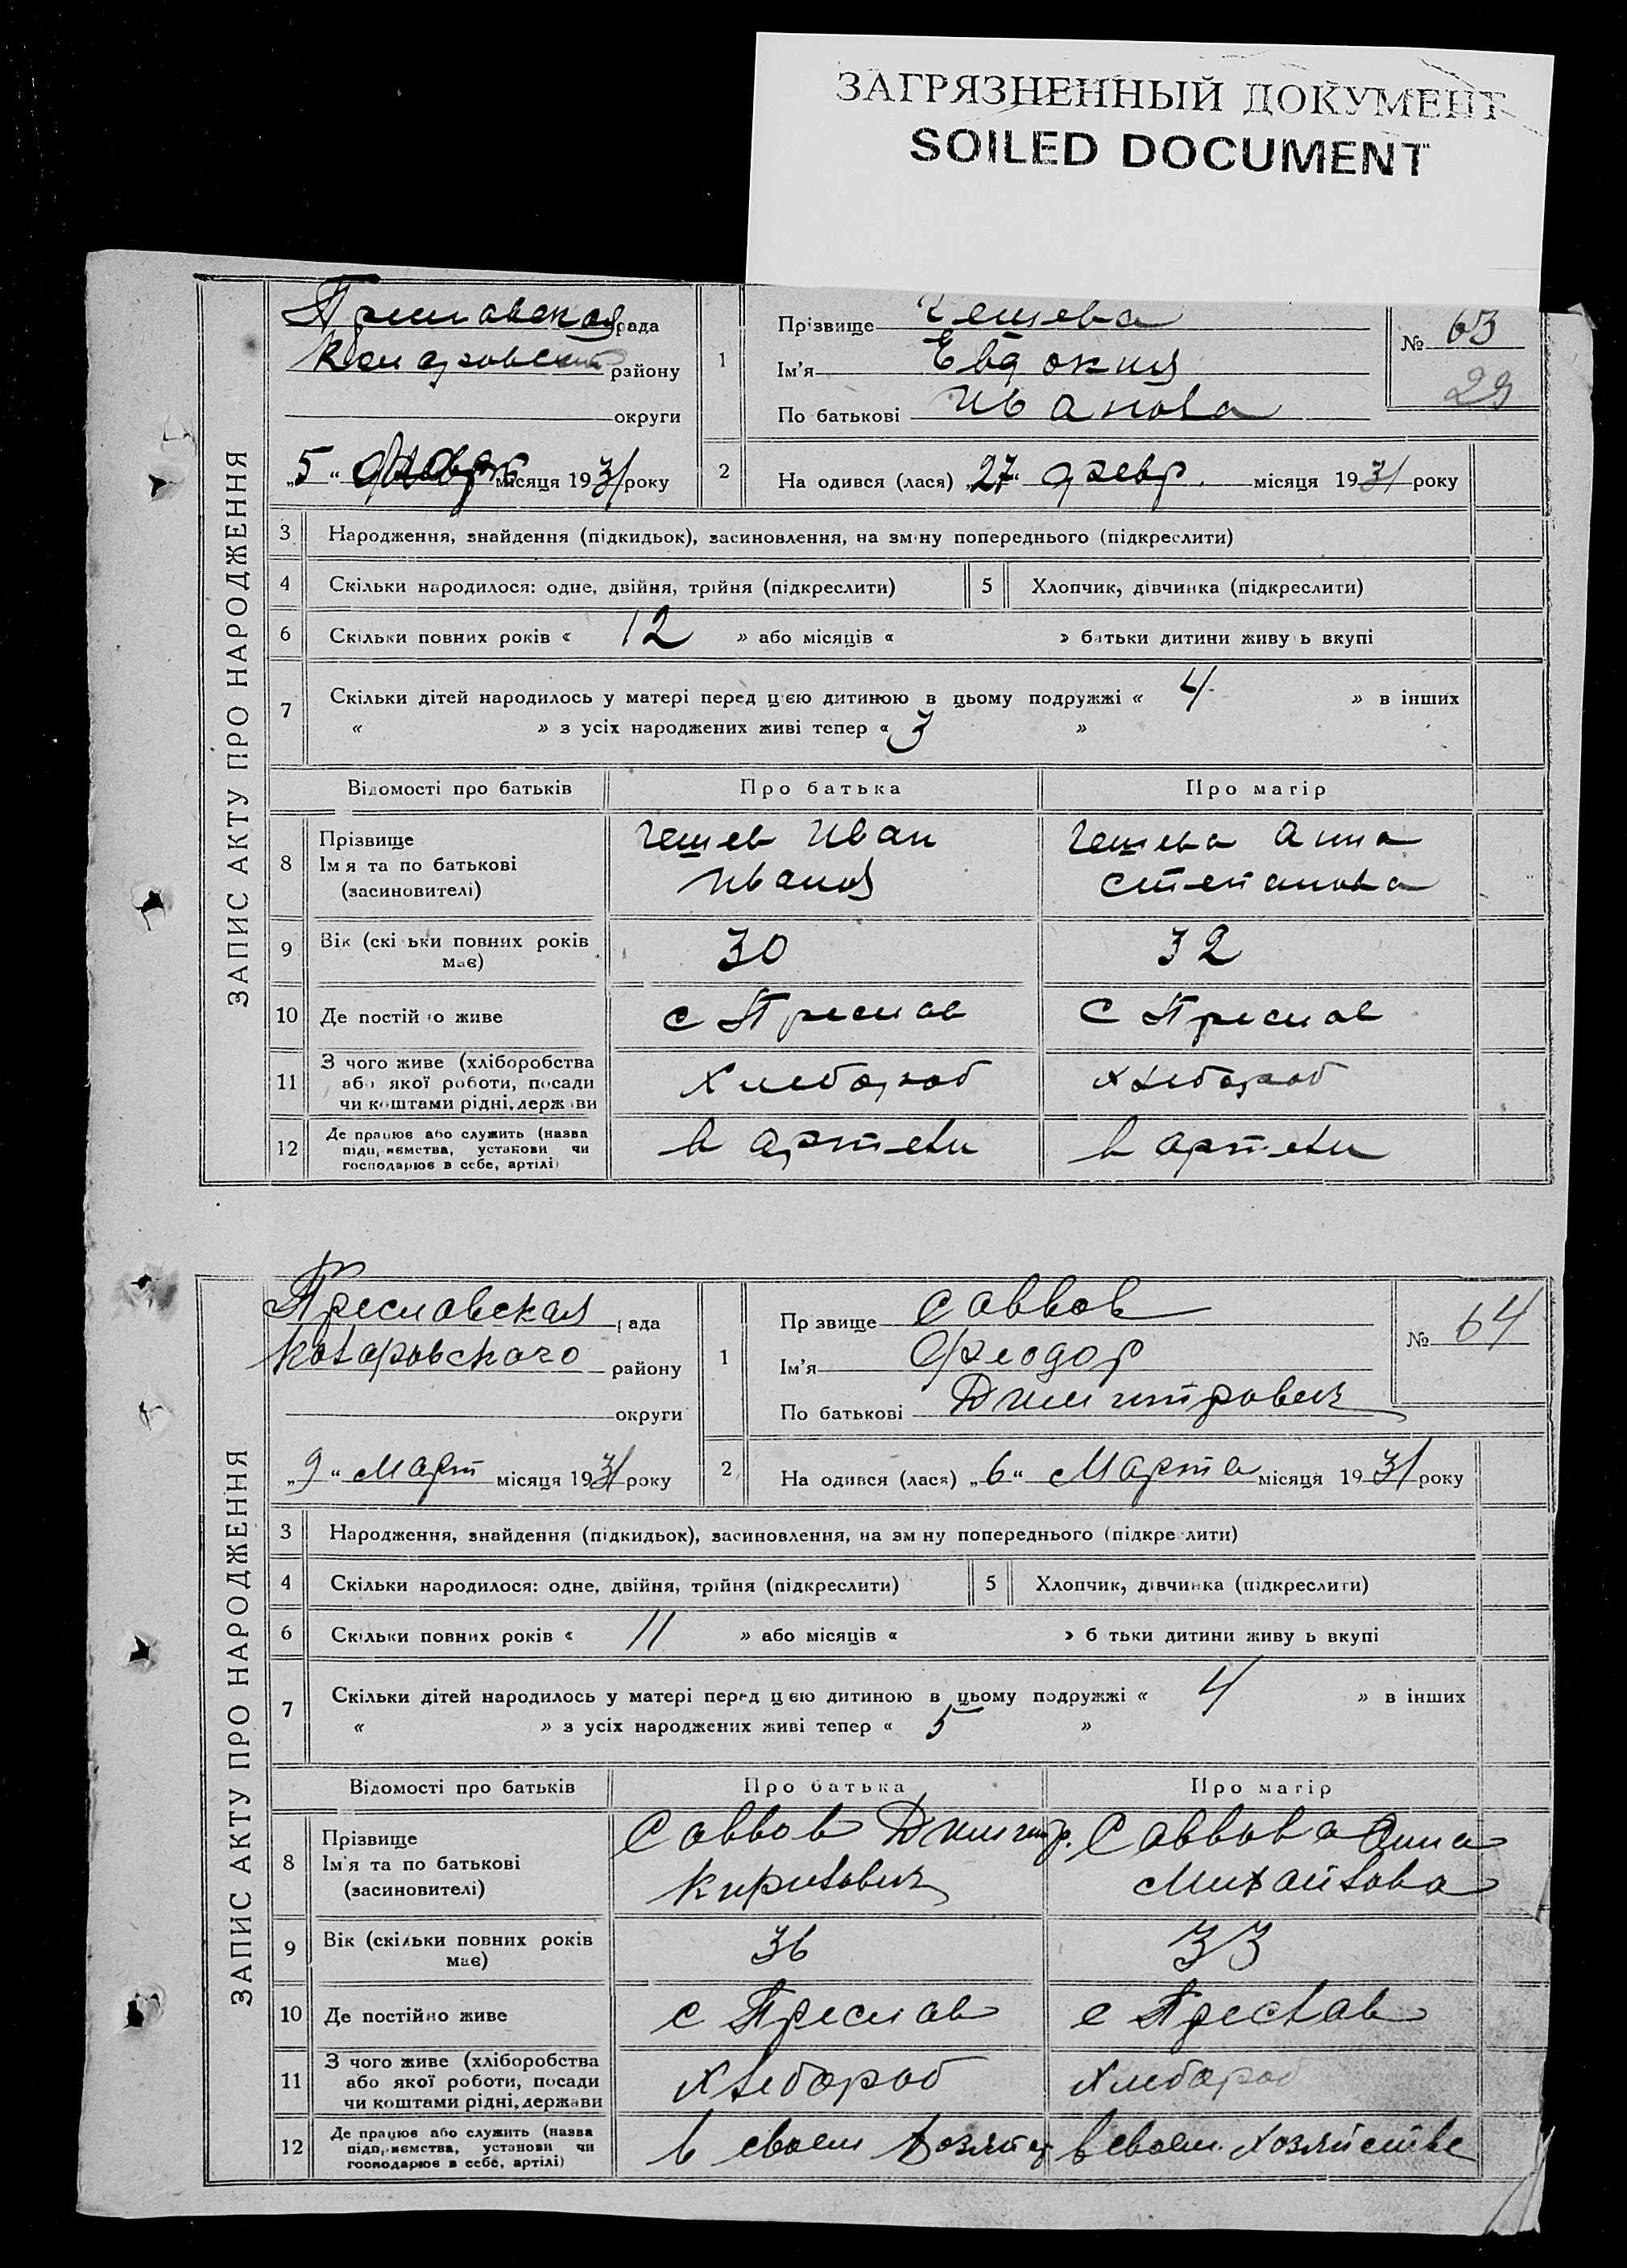 ЗАГРЯЗНЕННЫЙ ДОКУМЕНТ
SOILED DOCUMENT
ЗАПИС АКТУ ПРО НАРОДЖЕННЯ
Преславская рада
району
округи
„5“ місяця 1931 року
1
Прізвище Чешева
Ім'я Евдокия
По батькові Иванова
№ 63
29
2
На одився (лася) „27“ февр. місяця 1931 року
3 Народження, знайдення (підкидьок), засиновлення, на зм ну попереднього (підкреслити)
4 Скільки народилося: одне, двійня, трійня (підкреслити) 5 Хлопчик, дівчинка (підкреслити)
6 Скільки повних років « 12 » або місяців « » батьки дитини живу ь вкупі
7 Скільки дітей народилось у матері перед цією дитиною в цьому подружжі « 4 » в інших
« » з усіх народжених живі тепер « 3 »
Відомості про батьків Про батька Про матір
8 Прізвище
Ім'я та по батькові
(засиновителі)
Чешев Иван
Иванов
Чешева Анна
Степанова
9 Вік (скі ьки повних років
має)
30 32
10 Де постій о живе с Преслав С Преслав
11 З чого живе (хліборобства
або якої роботи, посади
чи коштами рідні, держ ви
Хлебороб хлебороб
12 Де працює або служить (назва
підп, ємства, установи чи
господарює в себе, артілі)
в артели в артели
ЗАПИС АКТУ ПРО НАРОДЖЕННЯ
Преславская рада
Коларовского району
округи
„9“ Март місяця 1931 року
1
Пр звище Саввов
Ім'я Феодор
По батькові Димитрович
№ 64
2
На одився (лася) „6“ Марта місяця 1931 року
3 Народження, знайдення (підкидьок), засиновлення, на зм ну попереднього (підкре лити)
4 Скільки народилося: одне, двійня, трійня (підкреслити) 5 Хлопчик, дівчинка (підкреслити)
6 Скільки повних років « 11 » або місяців « » б тьки дитини живу ь вкупі
7 Скільки дітей народилось у матері перед цією дитиною в цьому подружжі « 4 » в інших
« » з усіх народжених живі тепер « 5 »
Відомості про батьків Про батька Про матір
8 Прізвище
Ім'я та по батькові
(засиновителі)
Саввов Димитр.
Кирилович
Саввова Анна
Михайлова
9 Вік (скільки повних років
має)
36 33
10 Де постійно живе с Преслав с Преслав
11 З чого живе (хліборобства
або якої роботи, посади
чи коштами рідні, держави
Хлебороб Хлебороб
12 Де працює або служить (назва
підп, ємства, установи чи
господарює в себе, артілі)
в своем хозяйст в своем хозяйстве